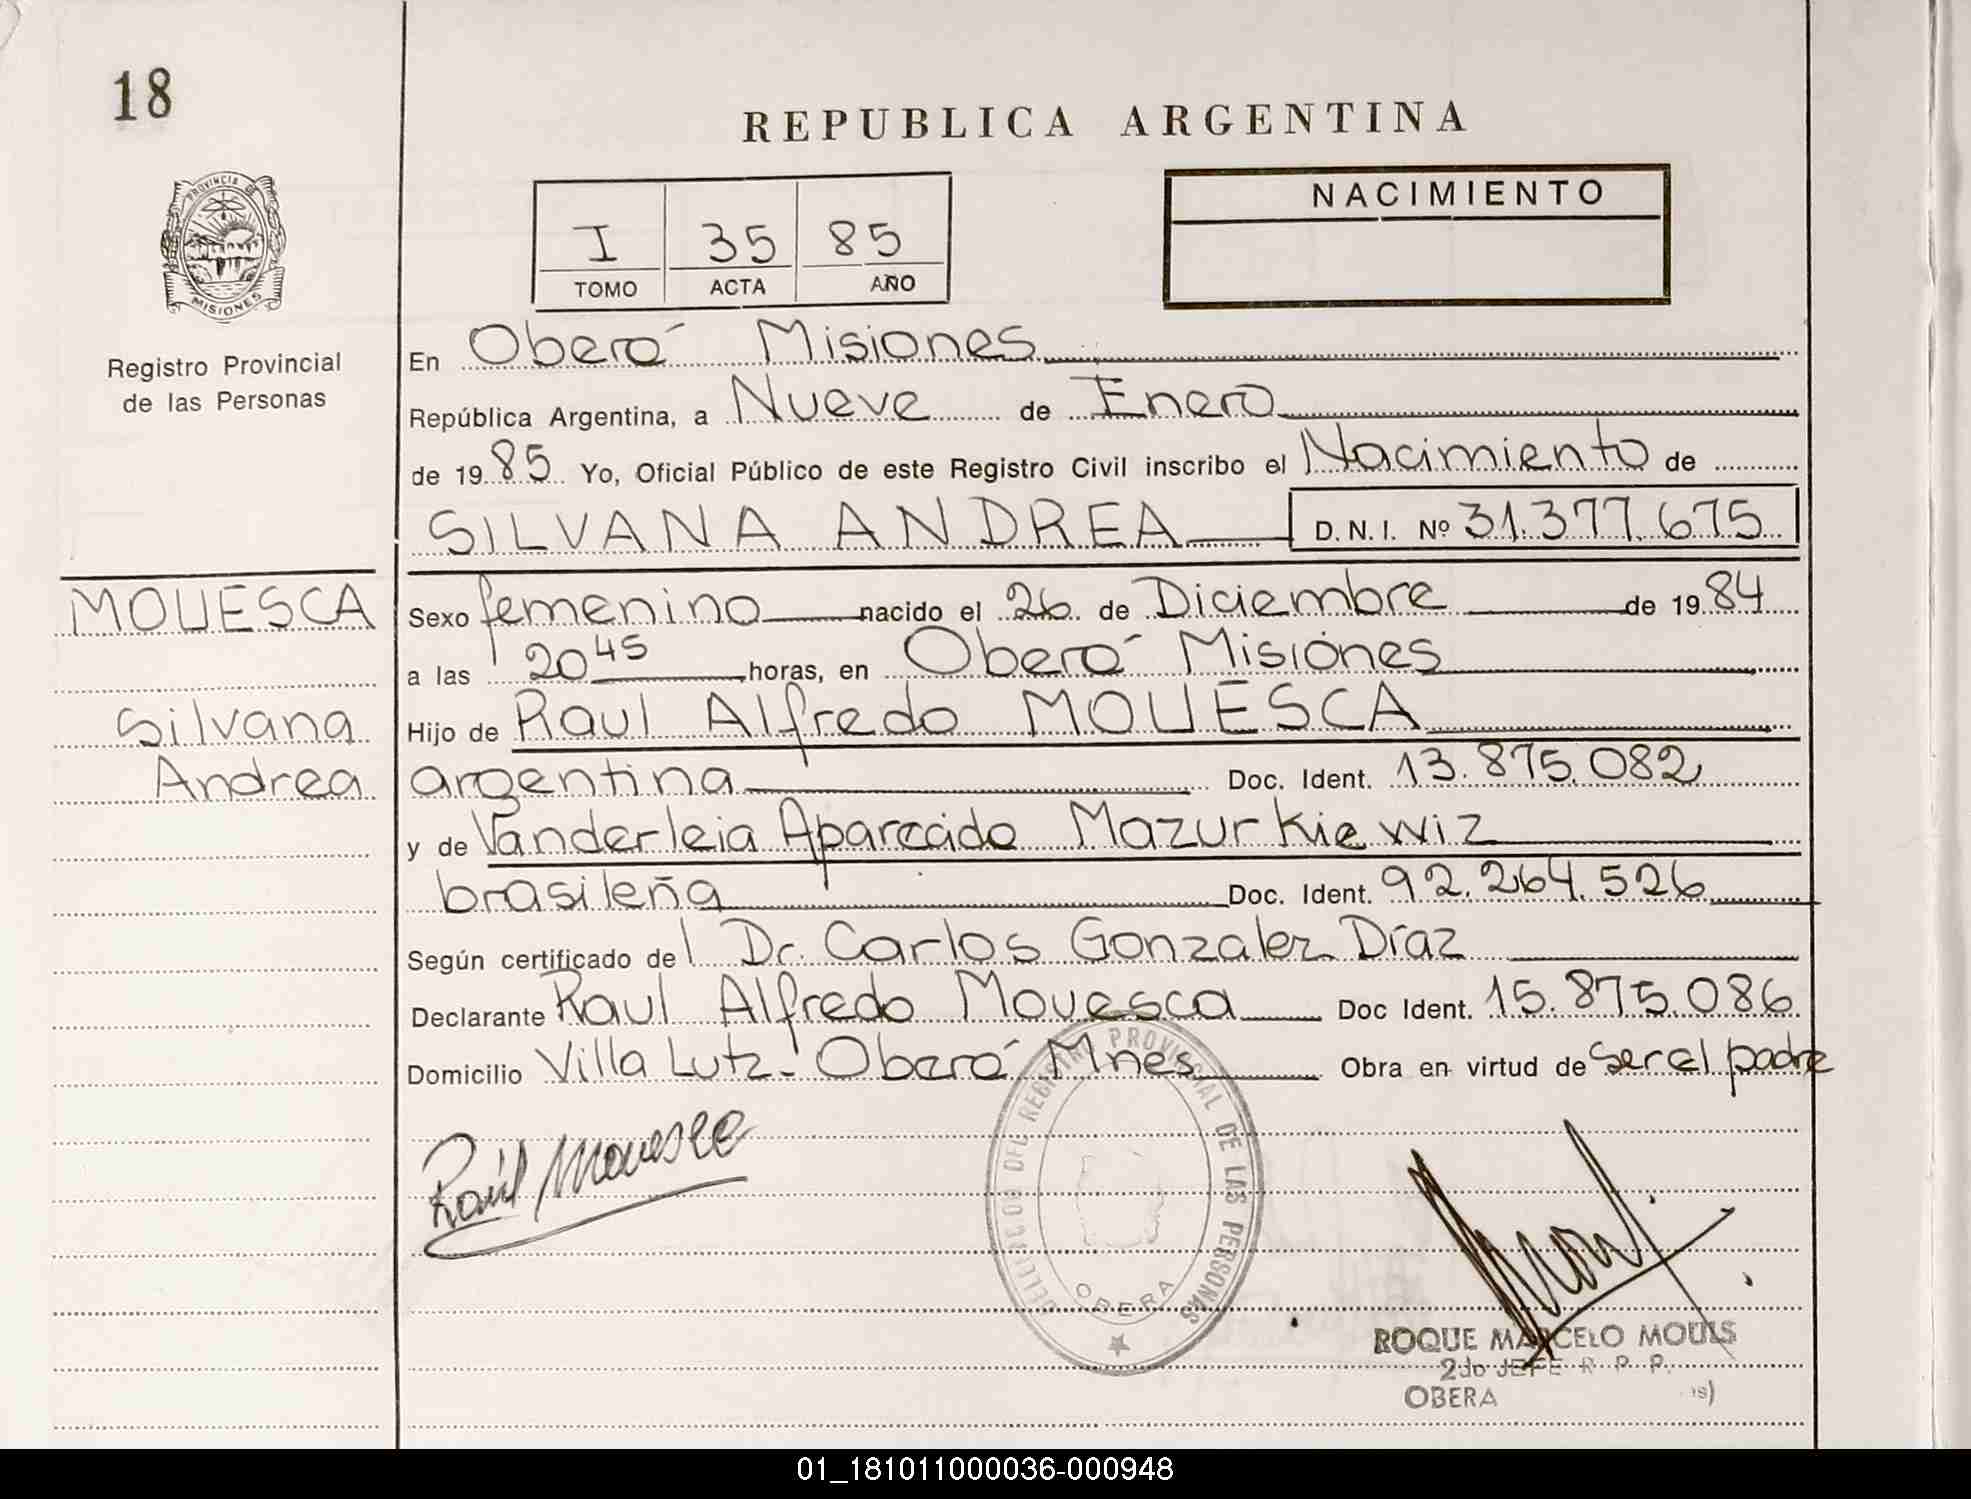 18
REPUBLICA ARGENTINA
PROVINCIA DE
MISIONES
I 35 85
TOMO ACTA AÑO
NACIMIENTO
Registro Provincial
de las Personas
En Oberá Misiones
República Argentina, a Nueve de Enero
de 19 85 Yo, Oficial Público de este Registro Civil inscribo el Nacimiento de
SILVANA ANDREA D.N.I. Nº 31.377.675
MOUESCA
Silvana
Andrea
Sexo femenino nacido el 26 de Diciembre de 19 84
a las 20 45 horas, en Oberá Misiones
Hijo de Raul Alfredo MOUESCA
argentina Doc. Ident. 13.875.082
y de Vanderleia Aparecida Mazurkiewiz
brasileña Doc. Ident. 92.264.526
Según certificado del Dr. Carlos Gonzalez Díaz
Declarante Raul Alfredo Mouesca Doc Ident. 15.875.086
Domicilio Villa Lutz - Oberá Mnes Obra en virtud de ser el padre
Raúl Mouesca
REGISTRO PROVINCIAL DE LAS PERSONAS
OBERA
ROQUE MARCELO MOULS
2do JEFE R. P. P.
OBERA
01_181011000036-000948